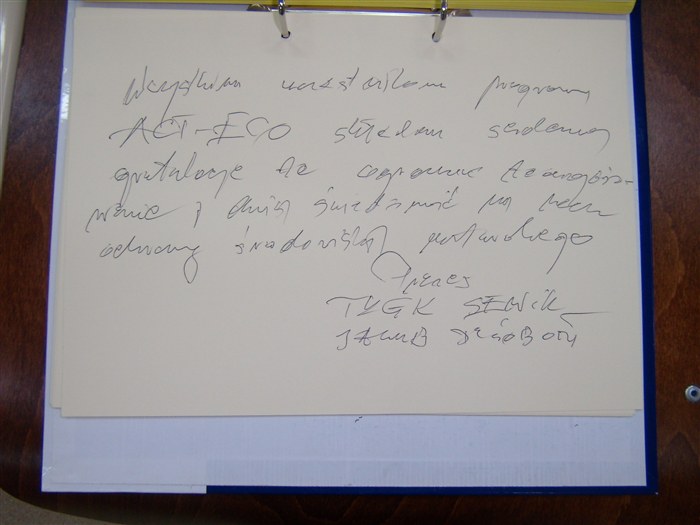 Wszystkim uczestnikom programu
ACT-ECO składam serdeczną
gratulacje za ogromne zaangażo-
wanie i dużą świadomość na rzecz
ochrony środowiska naturalnego
Prezes
TUGK